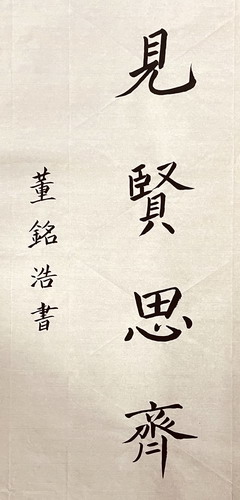 見賢思齊
董銘浩書